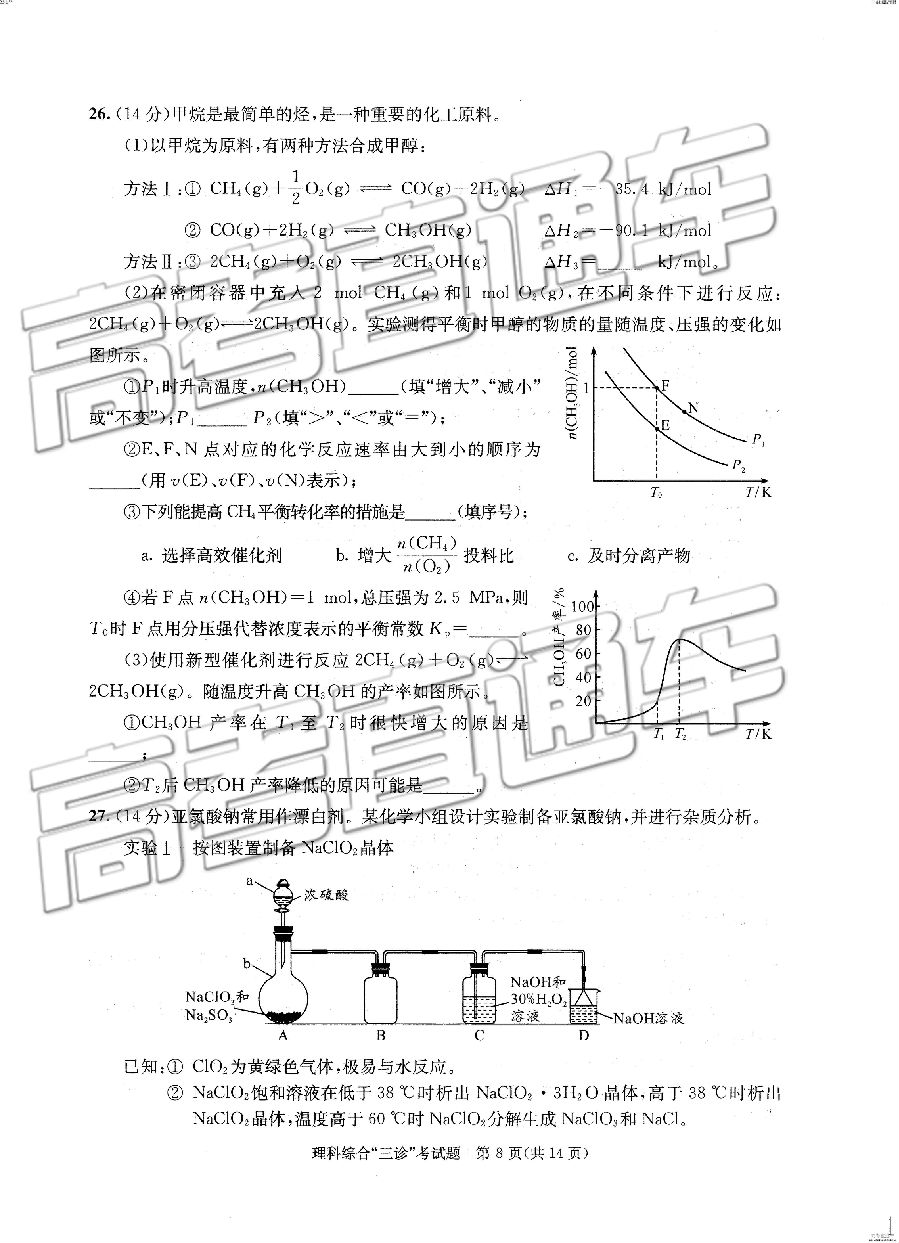 26.(14分)甲烷是最简单的烃,是一种重要的化工原料。
(1)以甲烷为原料,有两种方法合成甲醇:
方法Ⅰ:① CH₄(g)+1/2O₂(g) ⇌ CO(g)+2H₂(g) ΔH₁=-35.4 kJ/mol
② CO(g)+2H₂(g) ⇌ CH₃OH(g) ΔH₂=-90.1 kJ/mol
方法Ⅱ:③ 2CH₄(g)+O₂(g) ⇌ 2CH₃OH(g) ΔH₃=______ kJ/mol。
(2)在密闭容器中充入 2 mol CH₄(g)和1 mol O₂(g),在不同条件下进行反应:
2CH₄(g)+O₂(g)⇌2CH₃OH(g)。实验测得平衡时甲醇的物质的量随温度、压强的变化如
图所示。
①P₁时升高温度,n(CH₃OH)______(填“增大”、“减小”
或“不变”);P₁______P₂(填“>”、“<”或“=”);
②E、F、N 点对应的化学反应速率由大到小的顺序为
______(用 v(E)、v(F)、v(N)表示);
③下列能提高 CH₄平衡转化率的措施是______(填序号);
n(CH₃OH)/mol
1
F
N
E
P₁
P₂
T₀
T/K
a. 选择高效催化剂 b. 增大 n(CH₄)/n(O₂) 投料比 c. 及时分离产物
④若 F 点 n(CH₃OH)=1 mol,总压强为 2.5 MPa,则
T₀时 F 点用分压强代替浓度表示的平衡常数 Kₚ=______。
(3)使用新型催化剂进行反应 2CH₄(g)+O₂(g)⇌
2CH₃OH(g)。随温度升高 CH₃OH 的产率如图所示。
①CH₃OH 产率在 T₁ 至 T₂ 时很快增大的原因是
______;
②T₂后 CH₃OH 产率降低的原因可能是______。
CH₃OH产率/%
100
80
60
40
20
T₁ T₂ T/K
27.(14分)亚氯酸钠常用作漂白剂。某化学小组设计实验制备亚氯酸钠,并进行杂质分析。
实验Ⅰ 按图装置制备 NaClO₂晶体
a
浓硫酸
b
NaClO₃和
Na₂SO₃
NaOH和
30%H₂O₂
溶液
NaOH溶液
A B C D
已知:① ClO₂为黄绿色气体,极易与水反应。
② NaClO₂饱和溶液在低于 38 ℃时析出 NaClO₂·3H₂O 晶体,高于 38 ℃时析出
NaClO₂晶体,温度高于 60 ℃时 NaClO₂分解生成 NaClO₃和 NaCl。
理科综合“三诊”考试题 第 8 页(共 14 页)
高考直通车
高考直通车